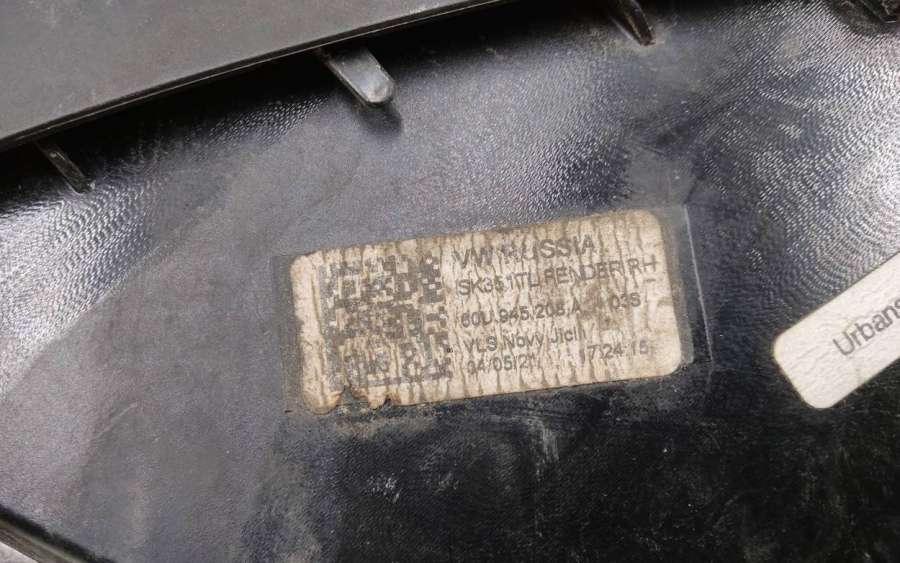 VW RUSSIA
SK351 TL FENDER RH
60U.945.208.A 03S
VLS Novy Jicin
04/05/21 17:24:15
Urbans